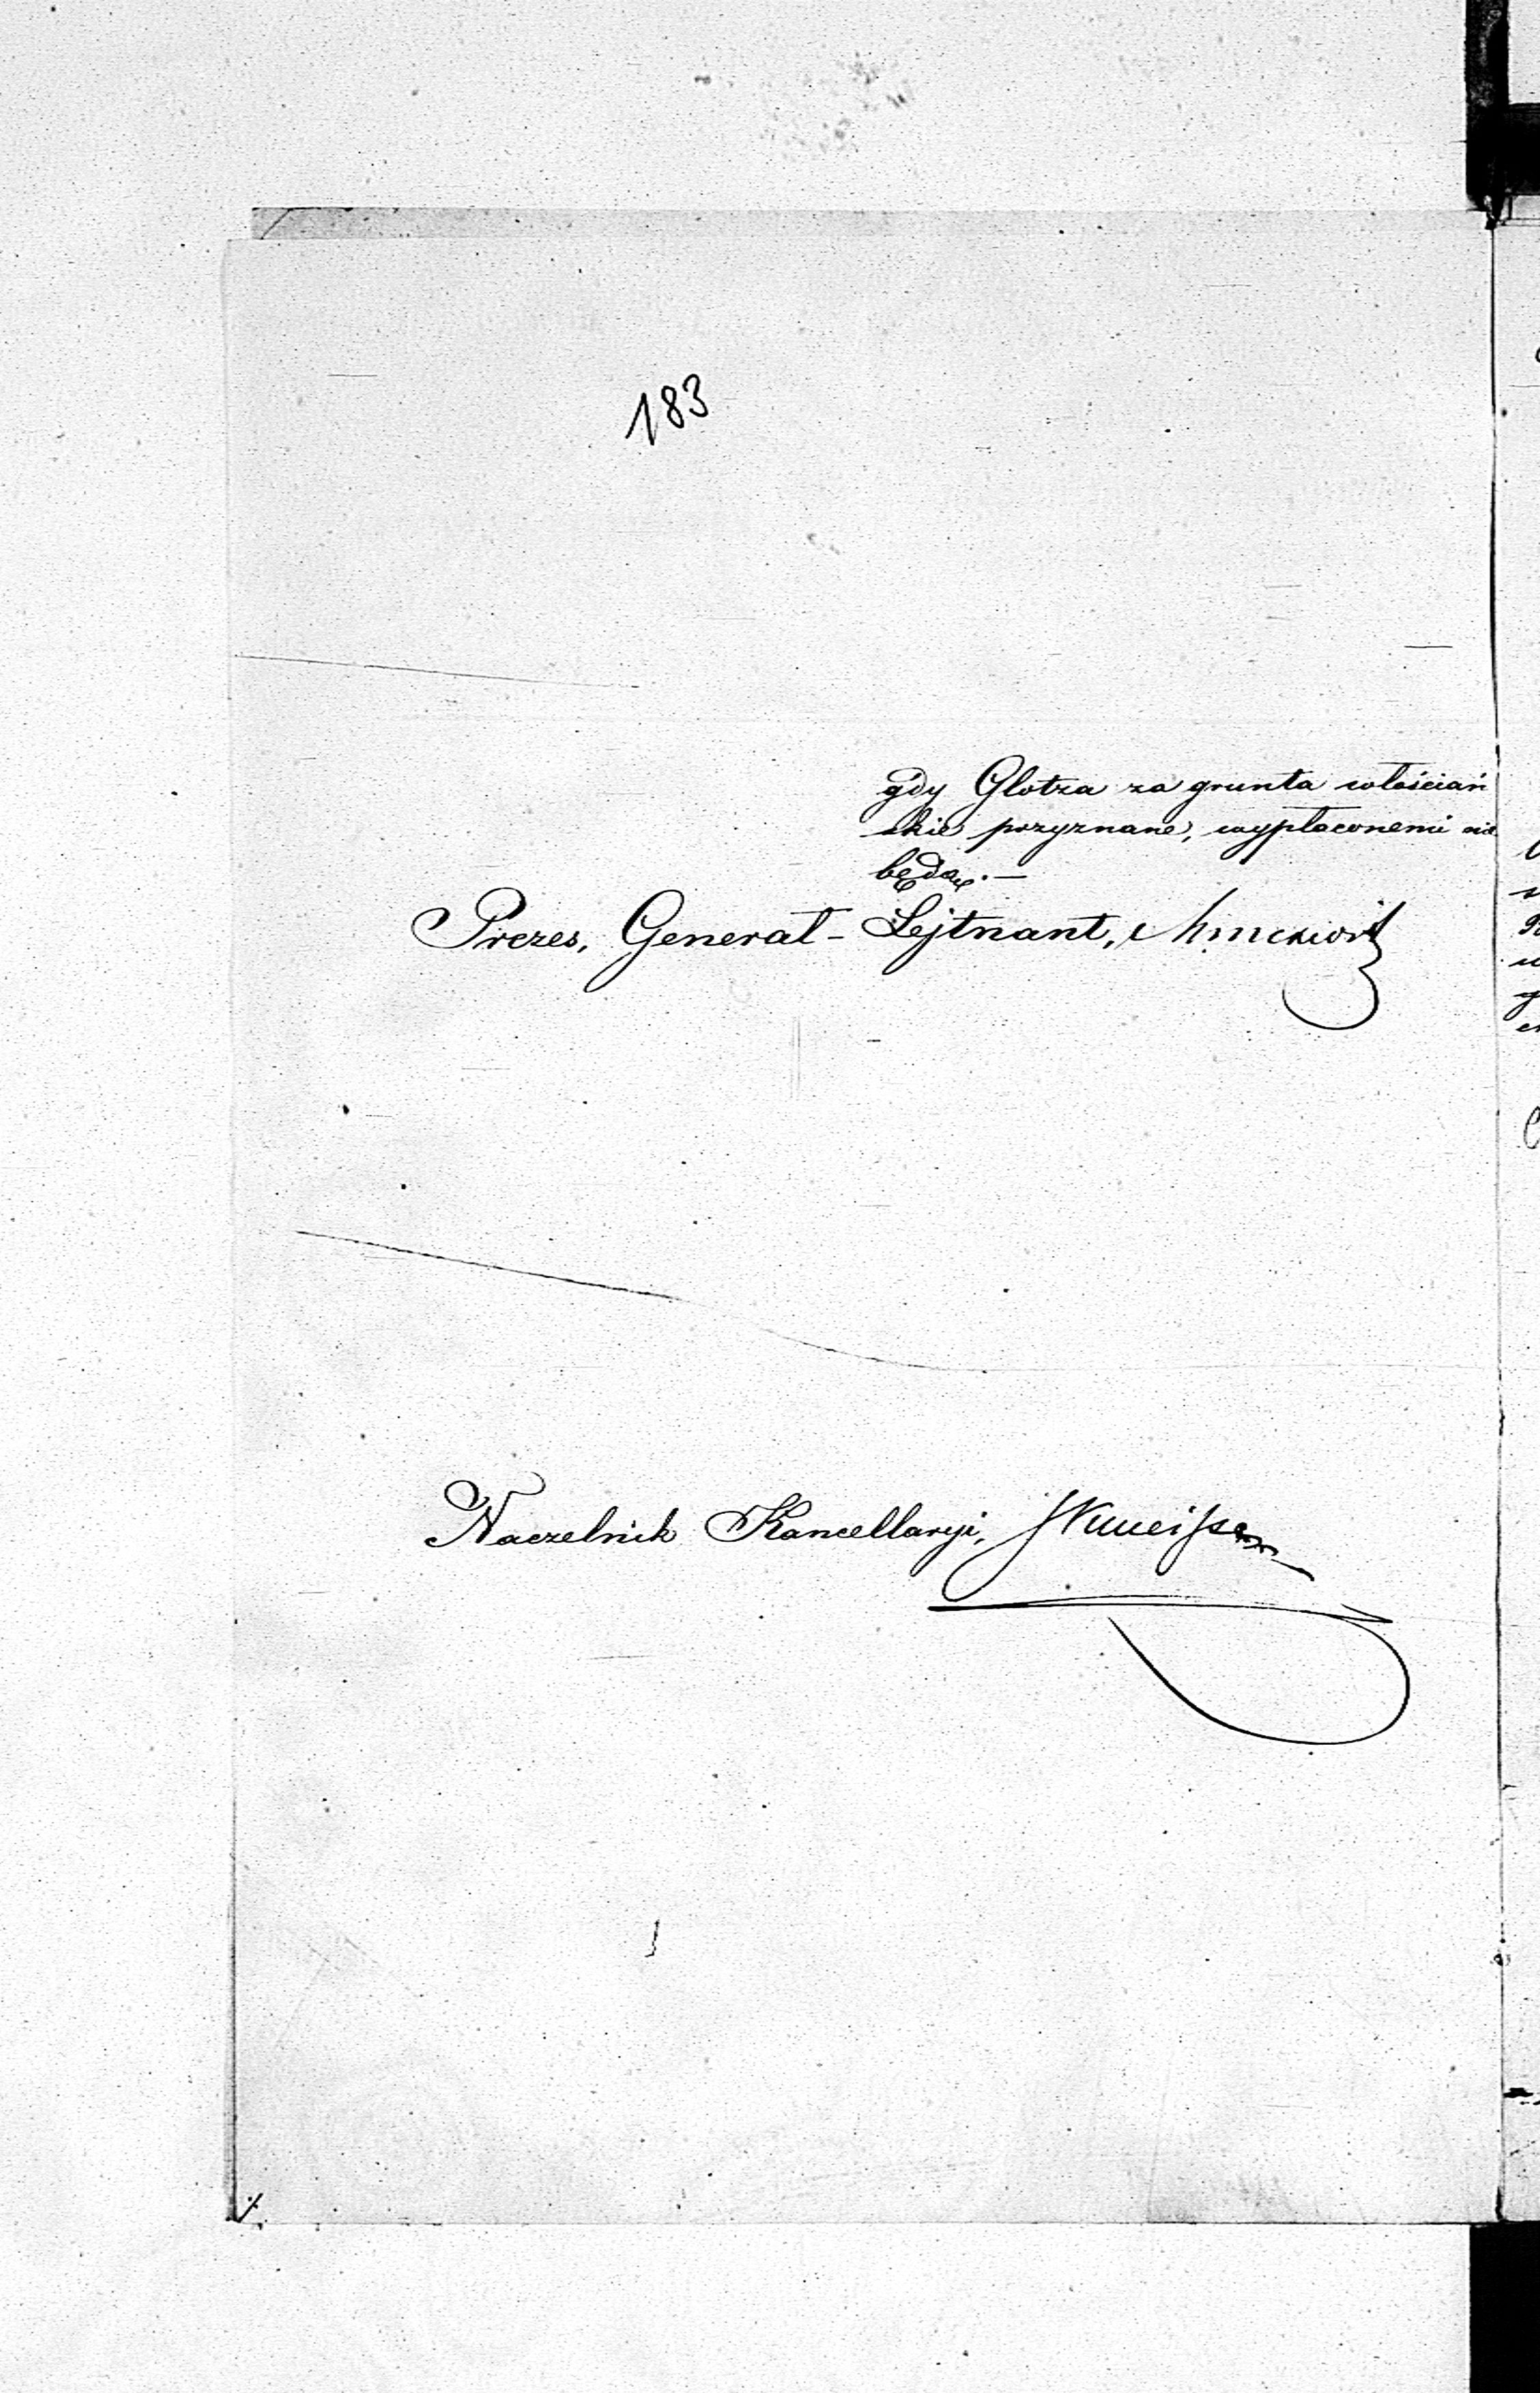 183
gdy Glotza za grunta włościań
skie przyznane, wypłaconemi nie
będą. —
Prezes, Generał-Lejtnant,
Naczelnik Kancellaryi,